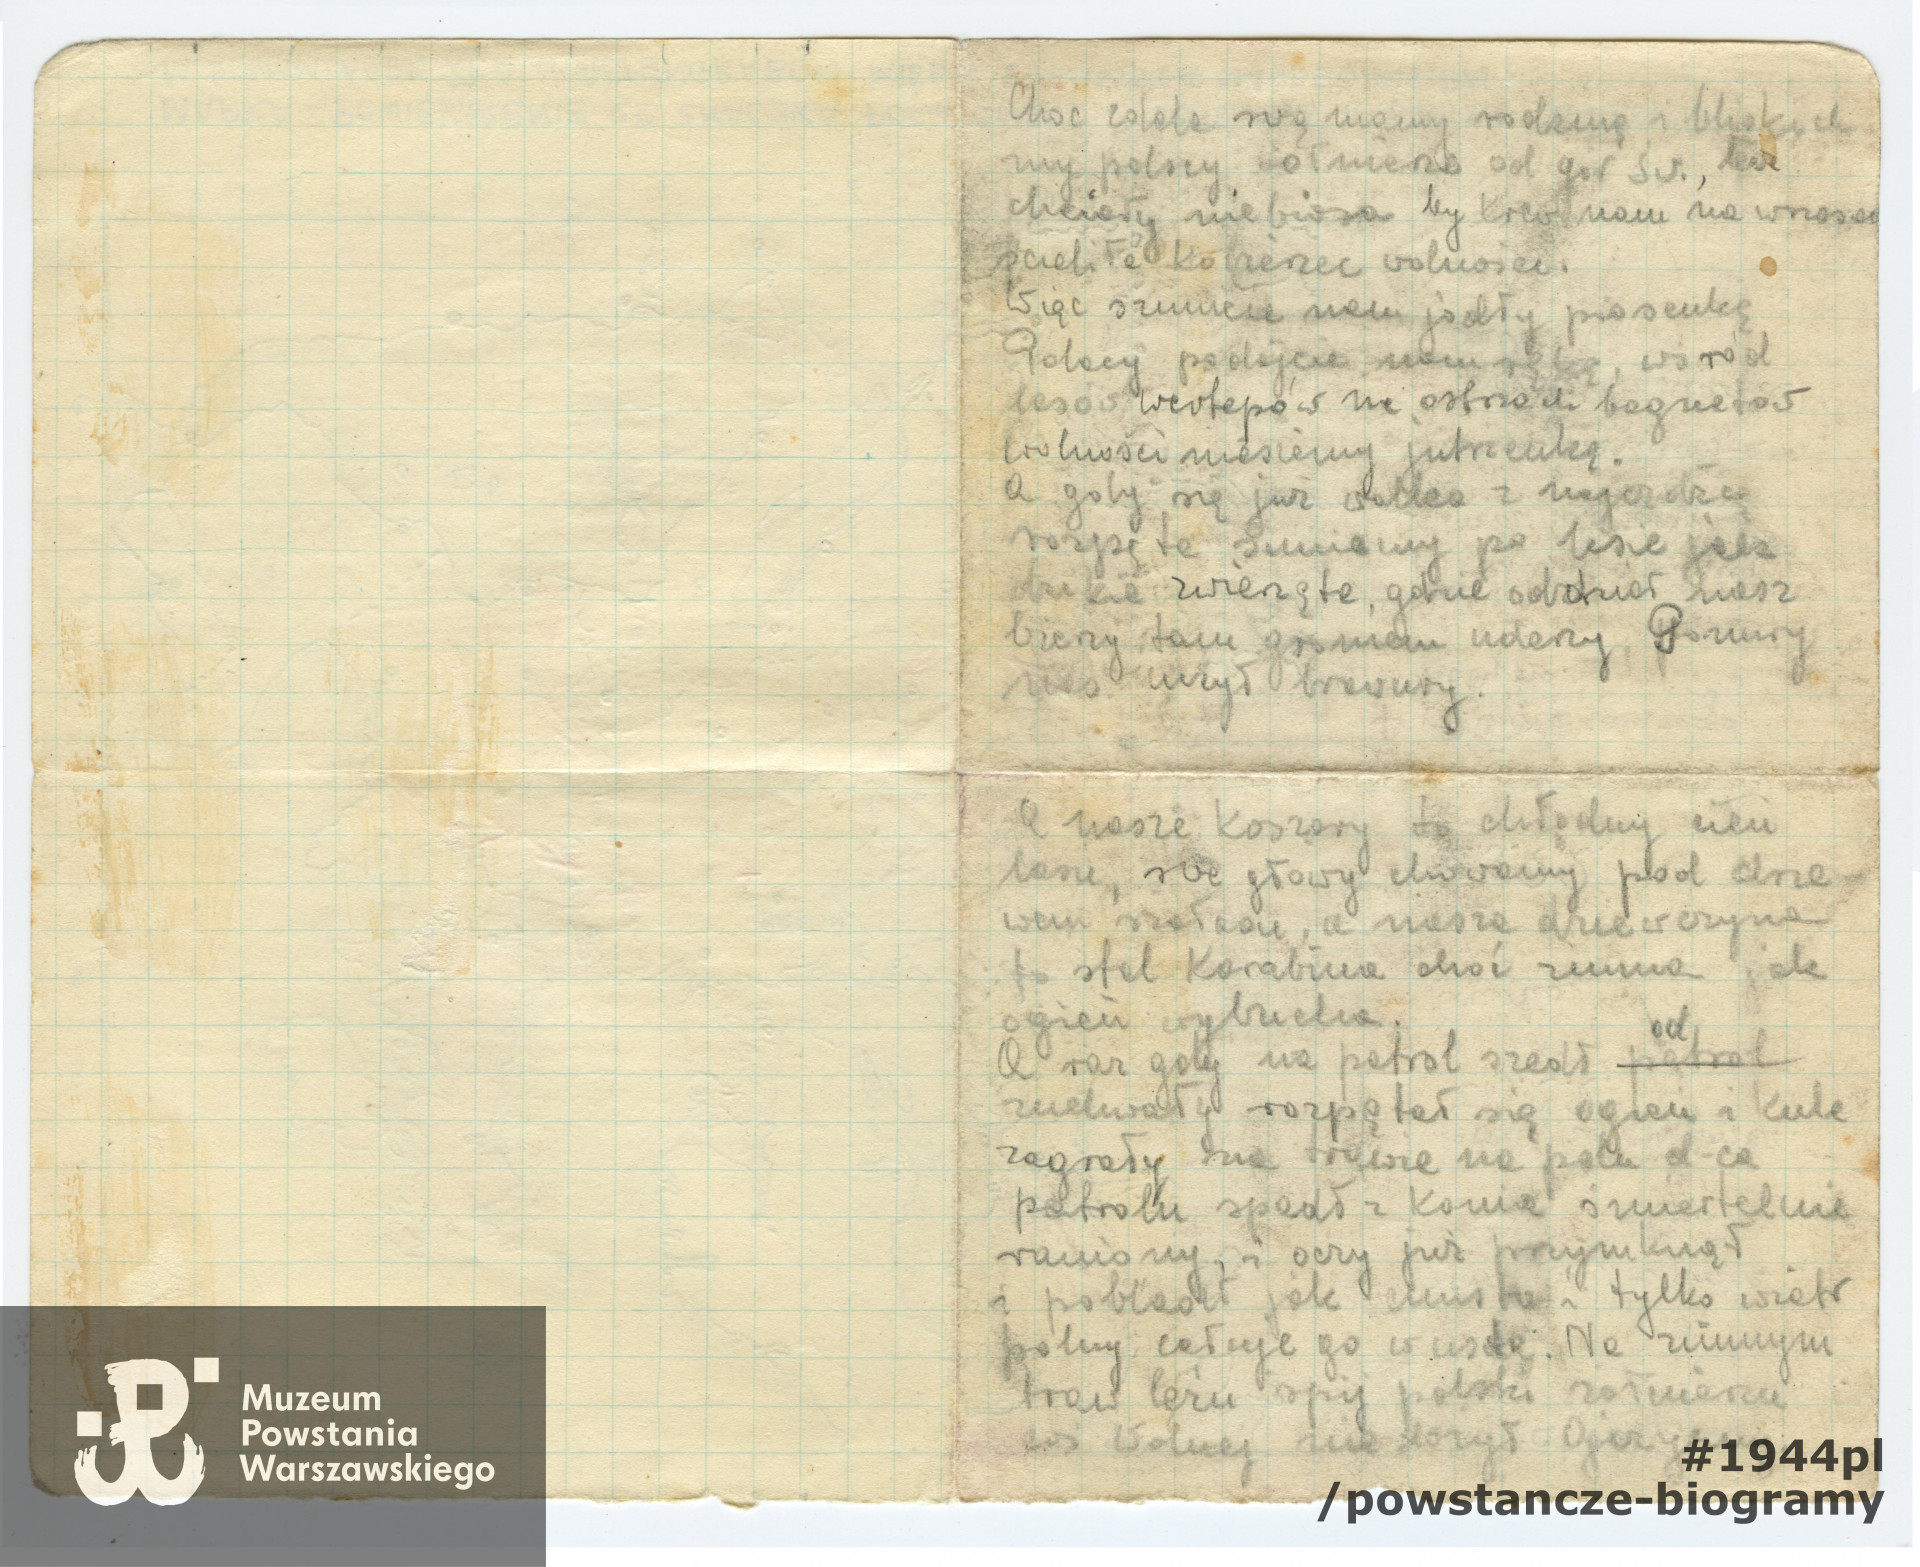 Choć zdala swą mamy rodzinę i bliskich
my polscy żołnierze od gór Św., tak
chciały niebiosa by krew nam na wrzosach
ścieliła kobierzec wolności.
Więc szumcie nam jodły piosenkę
Polacy podajcie nam rękę, wśród
lasów wertepów na ostrzach bagnetów
wolności niesiemy jutrzenkę.
A gdy się już walka z najeźdźcą
rozpęta suniemy po lesie jak
dzikie zwierzęta, gdzie oddział nasz
bieży tam gromem uderzy, Ponury
nas uczył brawury.
A nasze koszary to chłodny cień
lasu, swe głowy chowamy pod drze-
wem szałasu, a nasza dziewczyna
to stal karabina choć zimna jak
ogień wybucha.
A raz gdy na patrol szedł patrol
od
zuchwały rozpętał się ogień i kule
zagrały na trawie na polu d-ca
patrolu spadł z konia śmiertelnie
raniony, i oczy już przymknął
i pobladł jak chusta i tylko wiatr
polny całuje go w usta. Na zimnym
traw łożu śpij polski żołnierzu
coś wolnej nie dożył Ojczyzny
Muzeum
Powstania
Warszawskiego
#1944pl
/powstancze-biogramy